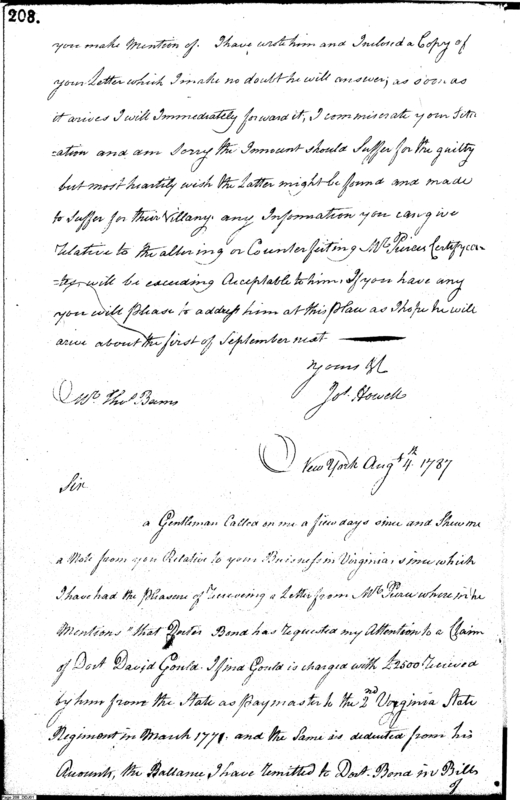 208.
you make Mention of. I have wrote him and Inclosed a Copy of
your Letter which I make no doubt he will answer; as soon as
it arives I will Immediately forward it, I commiserate your Situ
-ation and am Sorry the Innocent should Suffer for the guilty
but most heartily wish the Latter might be found and made
to Suffer for their Villany. any Information you can give
relative to the altering or Counterfeiting Mr. Pierces Certifyca-
-tes will be exceeding Acceptable to him, If you have any
you will please to address him at this place as I hope he will
arive about the first of September next
Yours &c
Jos. Howell
Mr. Thos. Beems
New York Augt. 4th. 1787
Sir
a Gentleman Called on me a few days since and Shew me
a Note from you Relative to your Business in Virginia, since which
I have had the pleasure of receiveing a Letter from Mr. Pierce wherein he
Mentions "that Doctor Bond has requested my Attention to a Claim
of Doct. David Gould. I find Gould is charged with £2500 received
by him from the State as paymaster to the 2nd Virginia State
Regiment in March 1778. and the Same is deducted from his
Accounts, the Ballance I have remitted to Doct. Bond in Bills
of